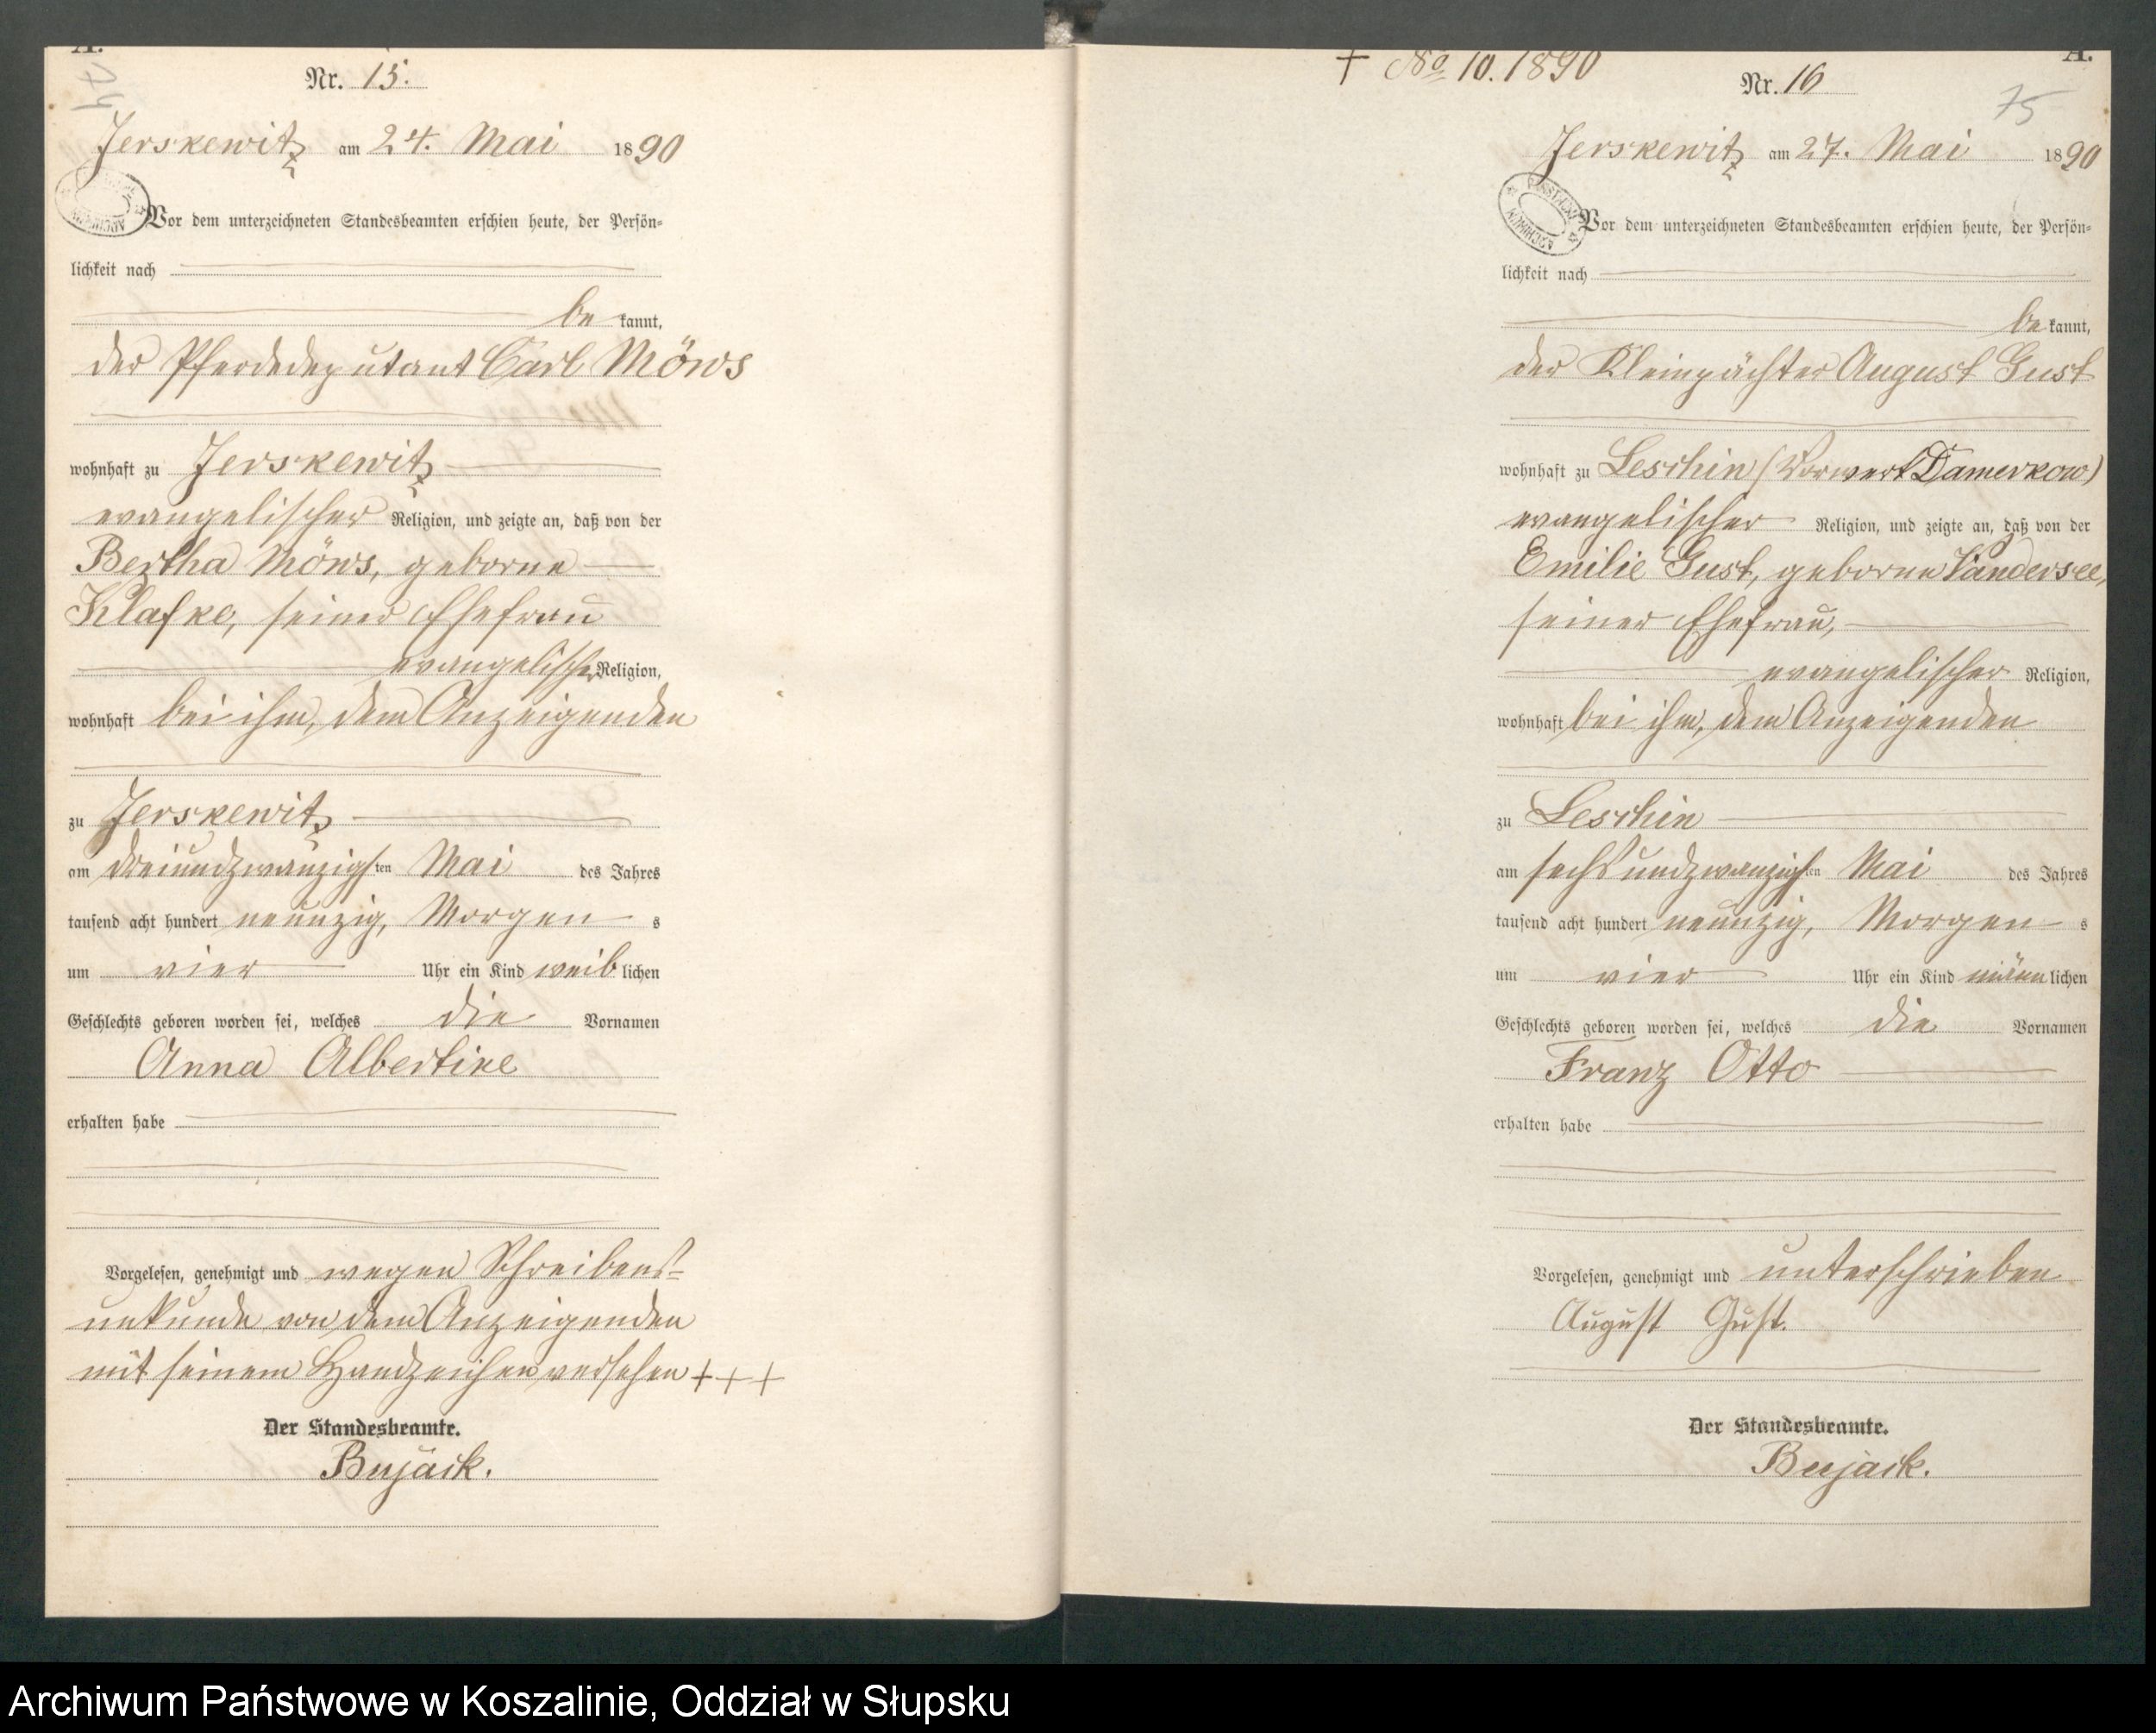 A.
74
Nr. 15.
Jerskewitz am 24. Mai 1890
Vor dem unterzeichneten Standesbeamten erschien heute, der Persön-
lichkeit nach
be kannt,
der Pferdedeputant Carl Möws
wohnhaft zu Jerskewitz
evangelischer Religion, und zeigte an, daß von der
Bertha Möws, geborne
Klafke, seiner Ehefrau
evangelischer Religion,
wohnhaft bei ihm, dem Anzeigenden
zu Jerskewitz
am dreiundzwanzigsten Mai des Jahres
tausend acht hundert neunzig, Morgens
um vier Uhr ein Kind weiblichen
Geschlechts geboren worden sei, welches die Vornamen
Anna Albertine
erhalten habe
Vorgelesen, genehmigt und wegen Schreibens-
unkunde von dem Anzeigenden
mit seinem Handzeichen versehen +++
Der Standesbeamte.
Bujack.
+ No 10. 1890
A.
Nr. 16
75
Jerskewitz am 27. Mai 1890
Vor dem unterzeichneten Standesbeamten erschien heute, der Persön-
lichkeit nach
be kannt,
der Kleinpächter August Gust
wohnhaft zu Leschin (Vorwerk Damerkow)
evangelischer Religion, und zeigte an, daß von der
Emilie Gust, geborne Vandersee,
seiner Ehefrau,
evangelischer Religion,
wohnhaft bei ihm, dem Anzeigenden
zu Leschin
am sechsundzwanzigsten Mai des Jahres
tausend acht hundert neunzig, Morgens
um vier Uhr ein Kind männlichen
Geschlechts geboren worden sei, welches die Vornamen
Franz Otto
erhalten habe
Vorgelesen, genehmigt und unterschrieben
August Gust.
Der Standesbeamte.
Bujack.
Archiwum Państwowe w Koszalinie, Oddział w Słupsku